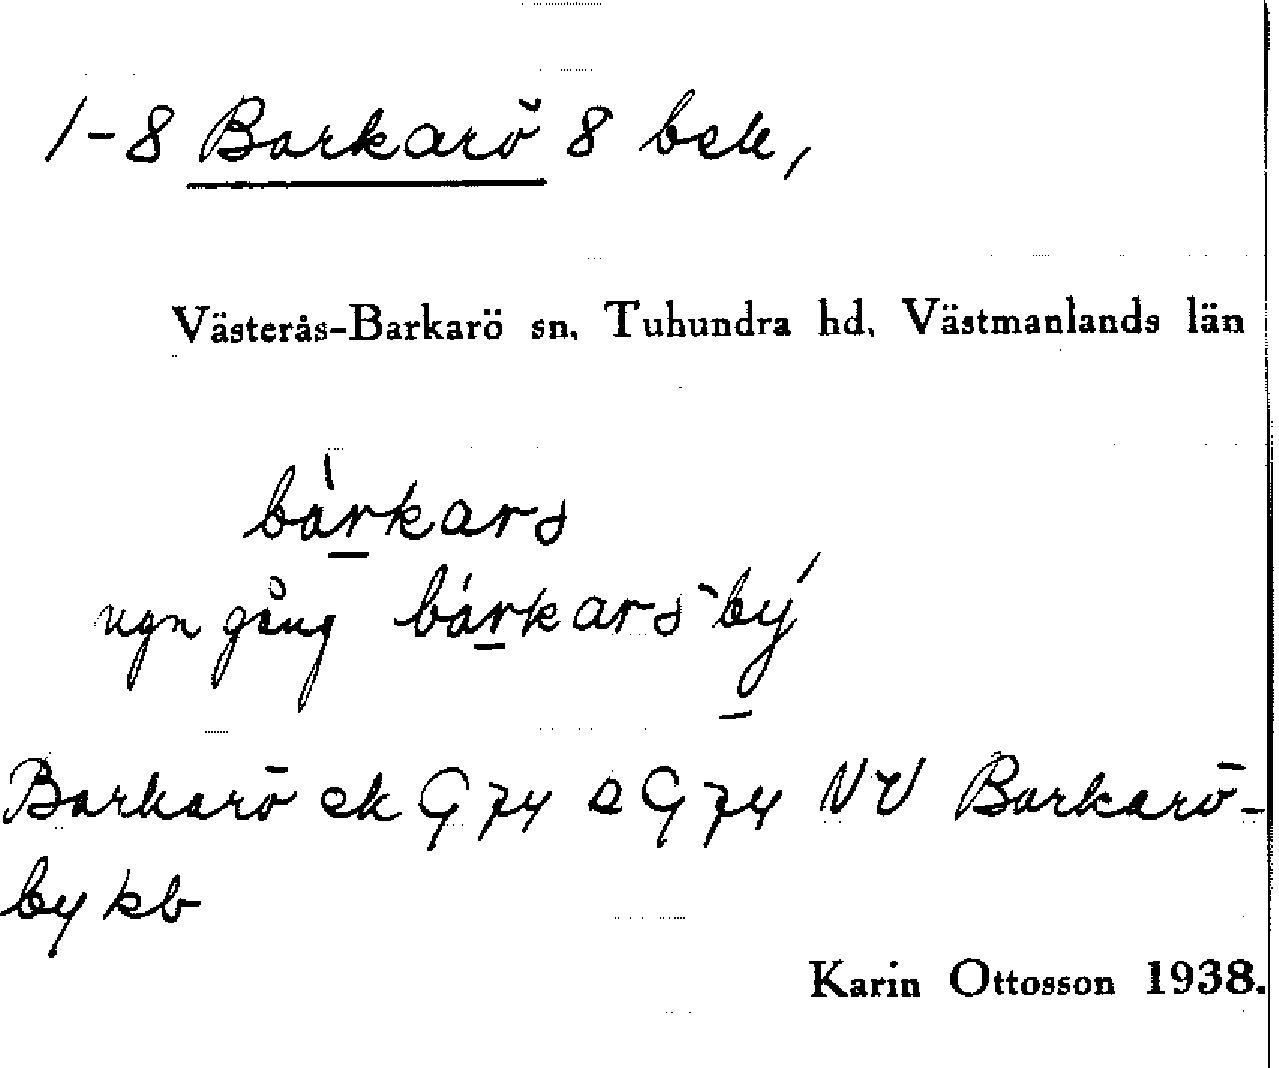 1-8 Barkarö 8 bsk,
Västerås-Barkarö sn. Tuhundra hd. Västmanlands län
bàrkars
ngn gång bárkars`bý
Barkarö ek G74 a G74 NV Barkarö-
by kb
Karin Ottosson 1938.